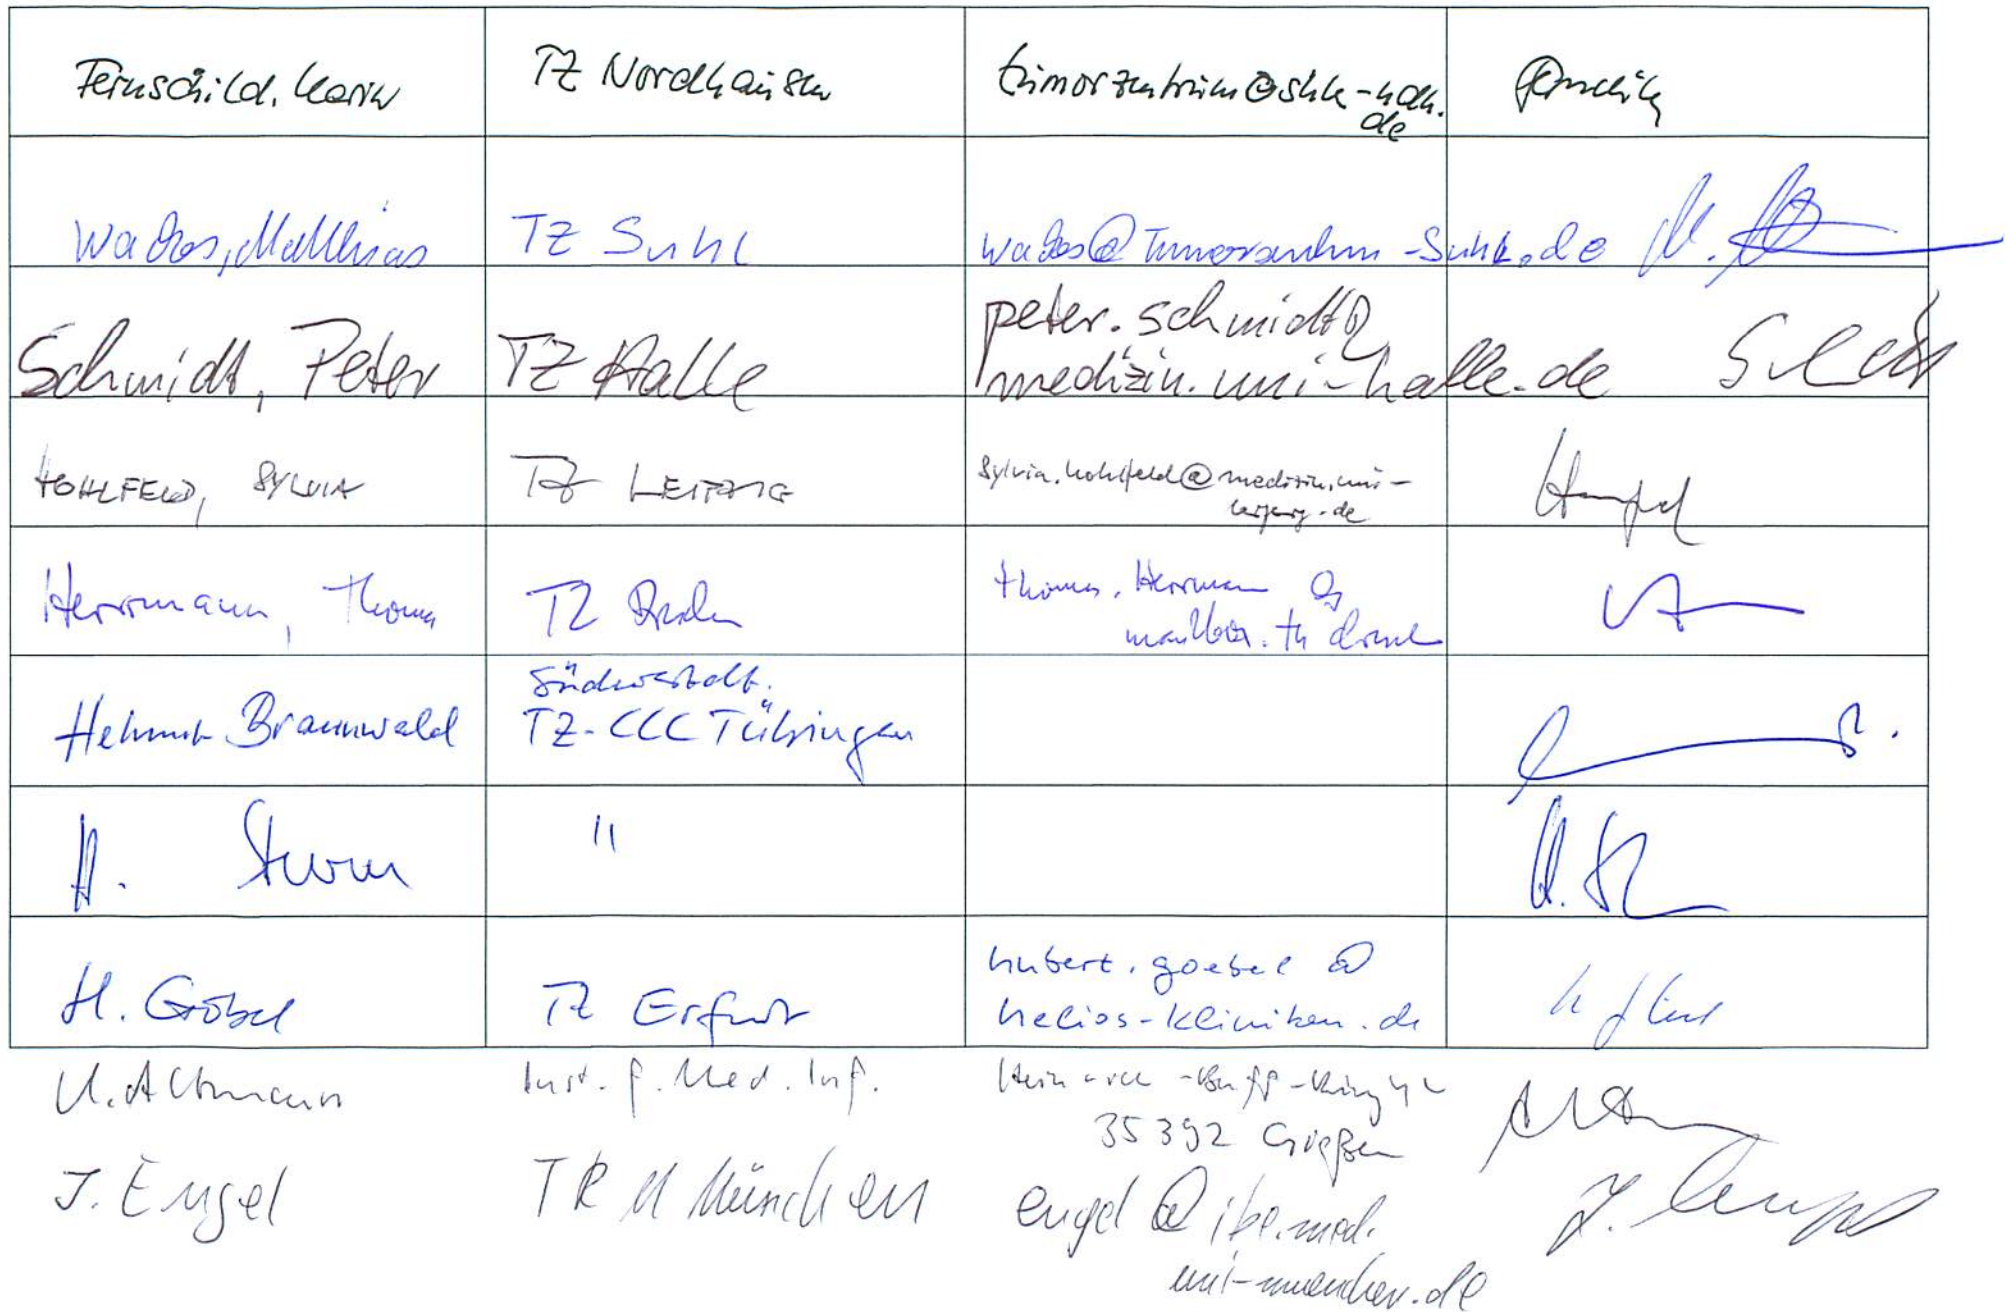 Fernschild, Karin
TZ Nordhausen
tumorzentrum@shk-ndh.
de
Wados, Matthias
TZ Suhl
wados@Tumorzentrum-Suhl.de
Schmidt, Peter
TZ Halle
peter.schmidt@
medizin.uni-halle.de
HOHLFELD, SYLVIA
TZ LEIPZIG
Sylvia.hohlfeld@medizin.uni-
leipzig.de
Herrmann, Thomas
TZ
Thomas.Herrmann@
Helmut Braunwald
Südwestdt.
TZ-CCC Tübingen
A. Sturm
"
H. Göbel
TZ Erfurt
hubert.goebel@
helios-kliniken.de
U. Altmann
Inst. f. Med. Inf.
35392 Gießen
J. Engel
TRM München
engel@ibe.med.
uni-muenchen.de